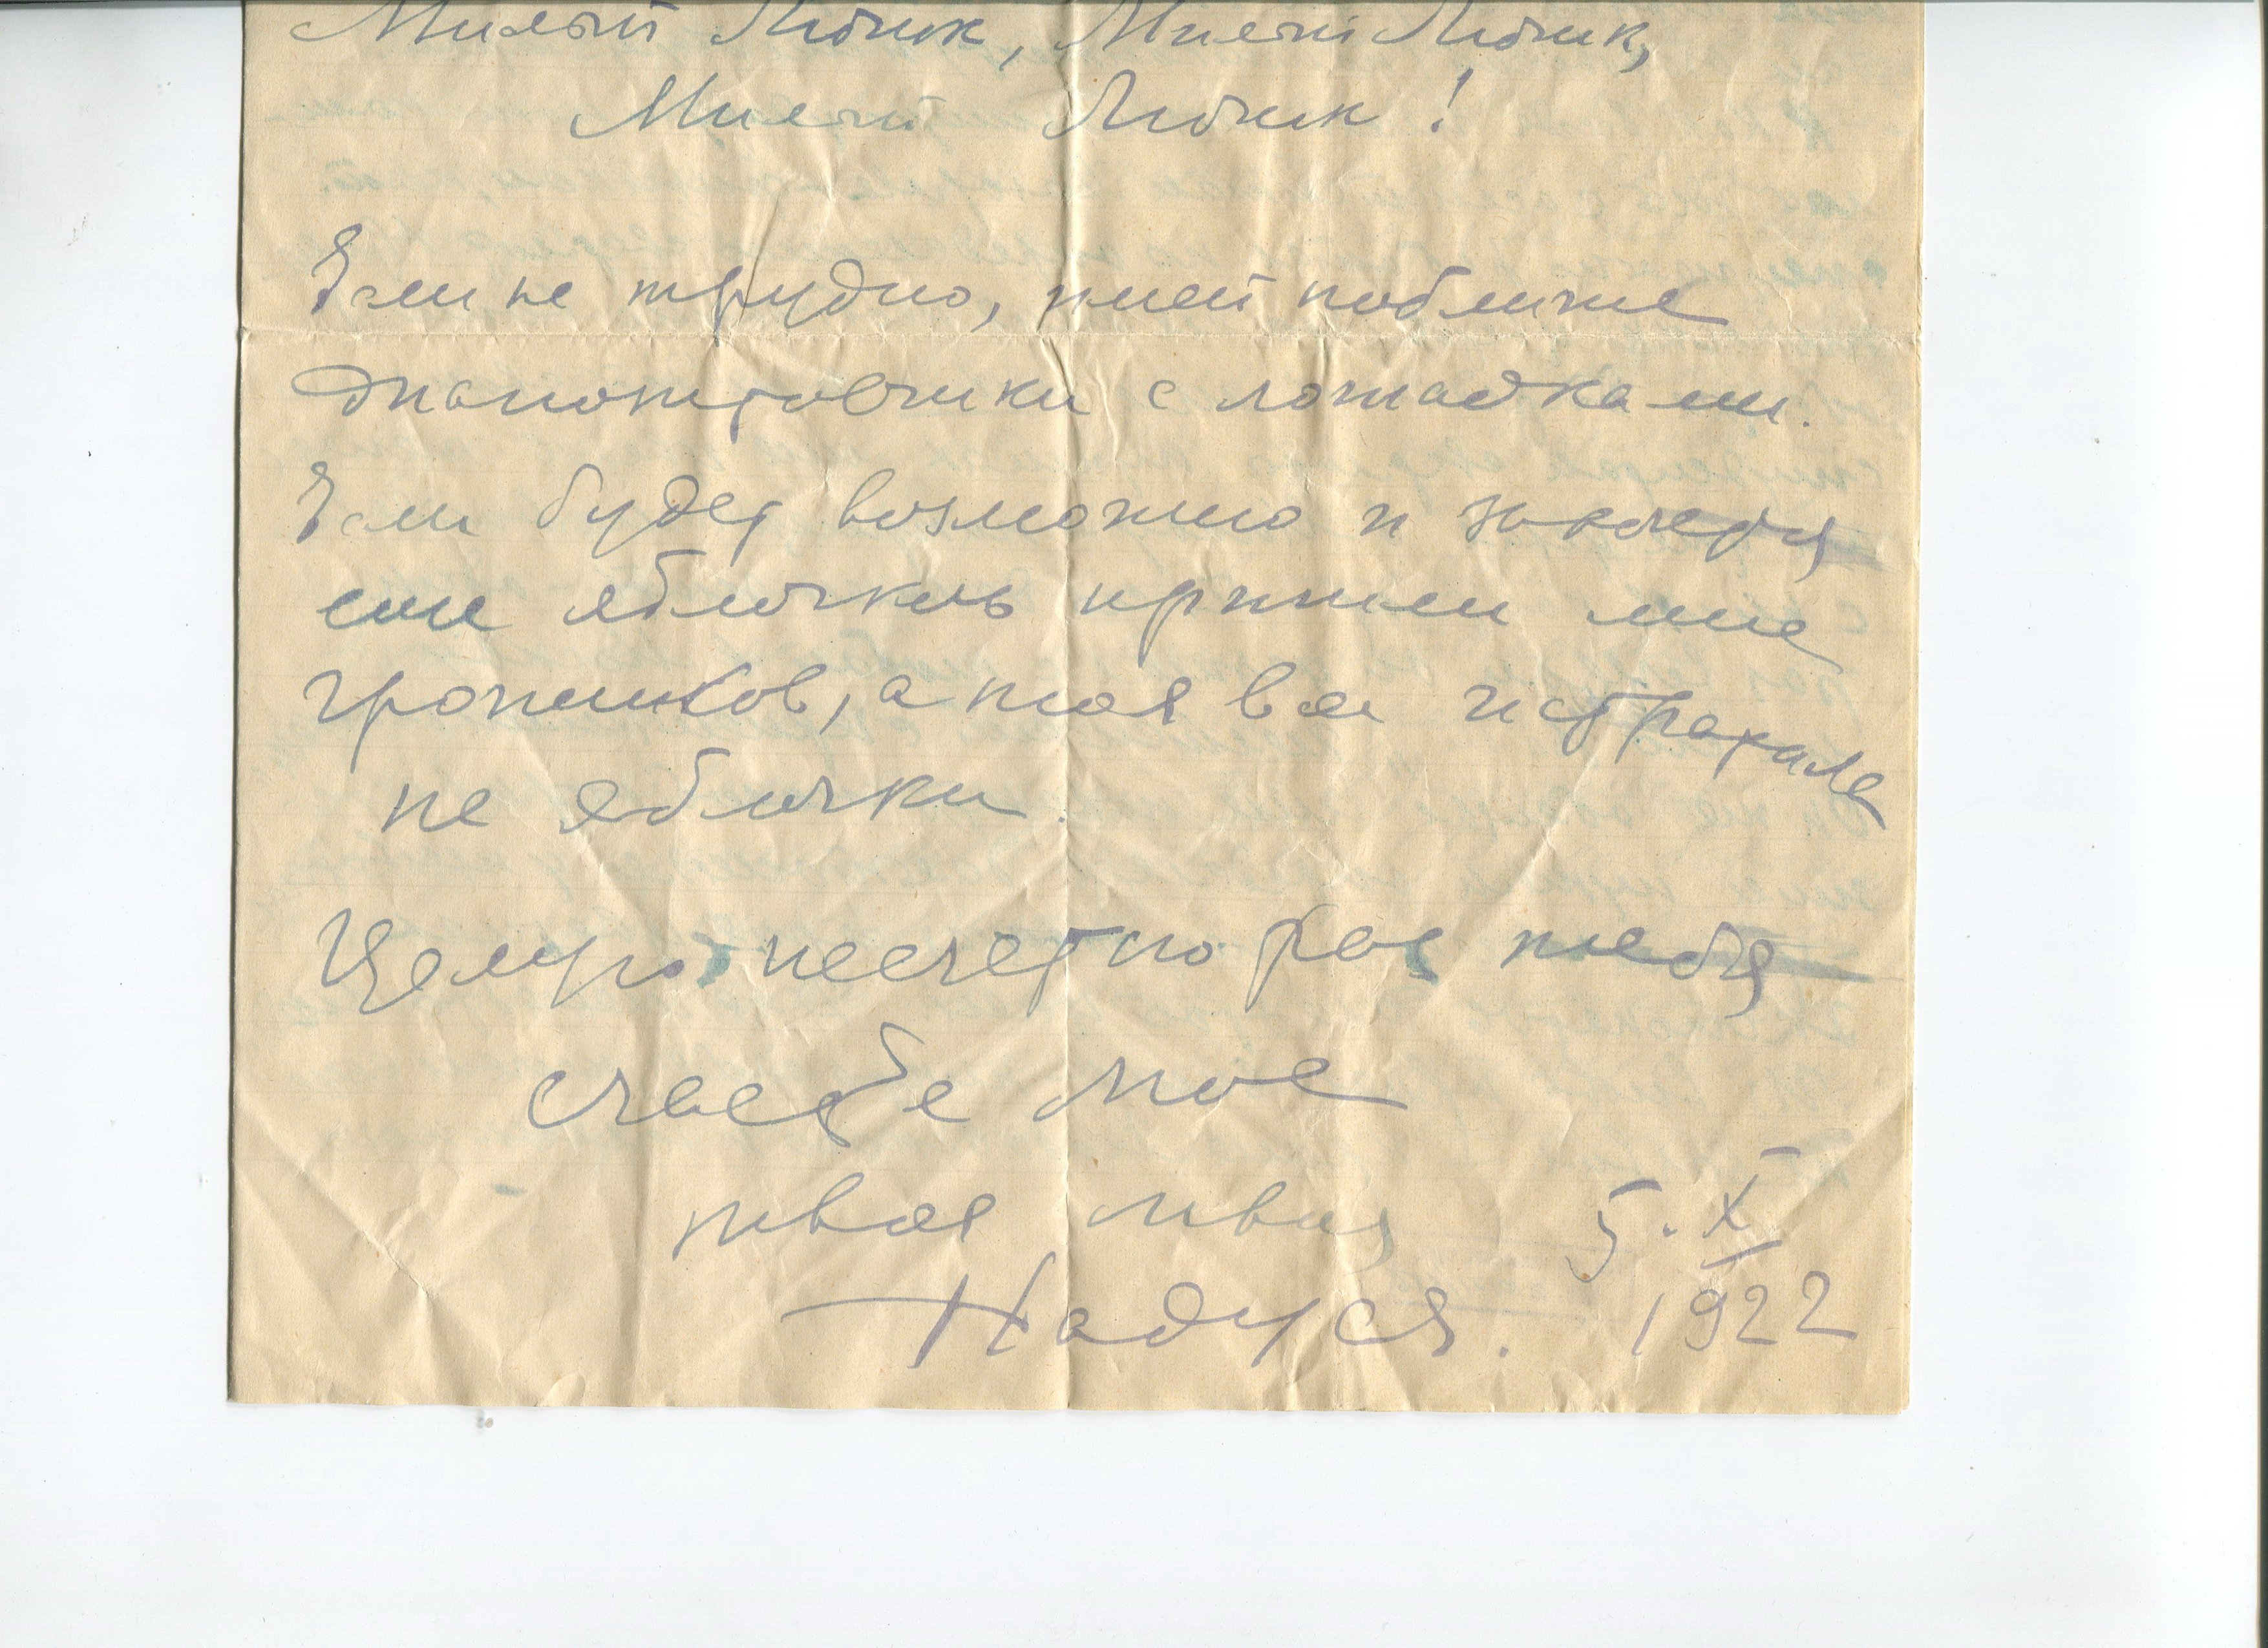 Милый Любик, Милый Любик,
Милый Любик!
Если не трудно, шей поближе
с лошадками.
Если будет возможно и захочется
еще яблочков пришли мне
грошиков, а то я все истратила
на яблочки.
Целую несчетно раз тебя
счастье мое
твоя, твоя
Надуся.
5.X
1922